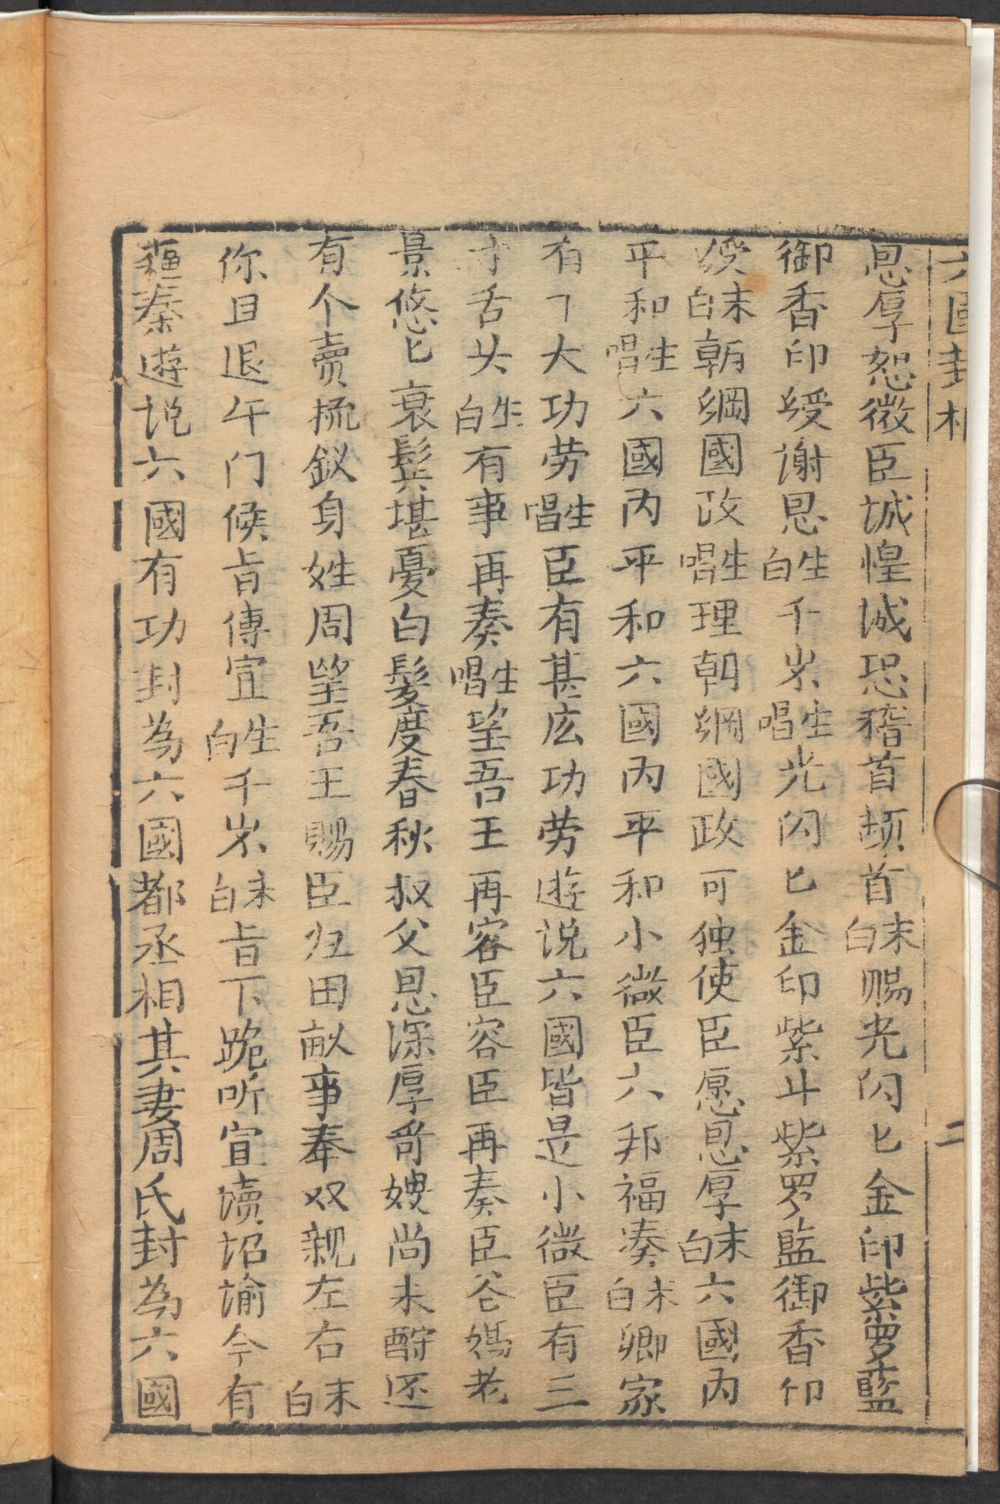 六國封相
二
恩厚恕微臣诚惶诚恐稽首頓首末白賜光闪匕金印紫罗藍
御香印绶谢恩生白千岁生唱光闪匕金印紫斗紫罗藍御香印
绶末白朝綱國政生唱理朝綱國政可独使臣愿恩厚末白六國内
平和生唱六國丙平和六國丙平和小微臣六邦福凑末白卿家
有了大功劳生唱臣有甚庅功劳遊说六國皆是小微臣有三
寸舌头生白有事再奏生唱望吾王再容臣容臣再奏臣爸媽老
景悠匕衰鬓堪憂白髮度春秋叔父恩深厚哥嫂尚未酧还
有个賣梳釵身姓周望吾王賜臣归田畝事奉双親左右末白
你且退午门候旨傳宣生白千岁末白旨下跪听宣讀诏谕今有
蘓秦遊说六國有功封為六國都丞相其妻周氏封為六國